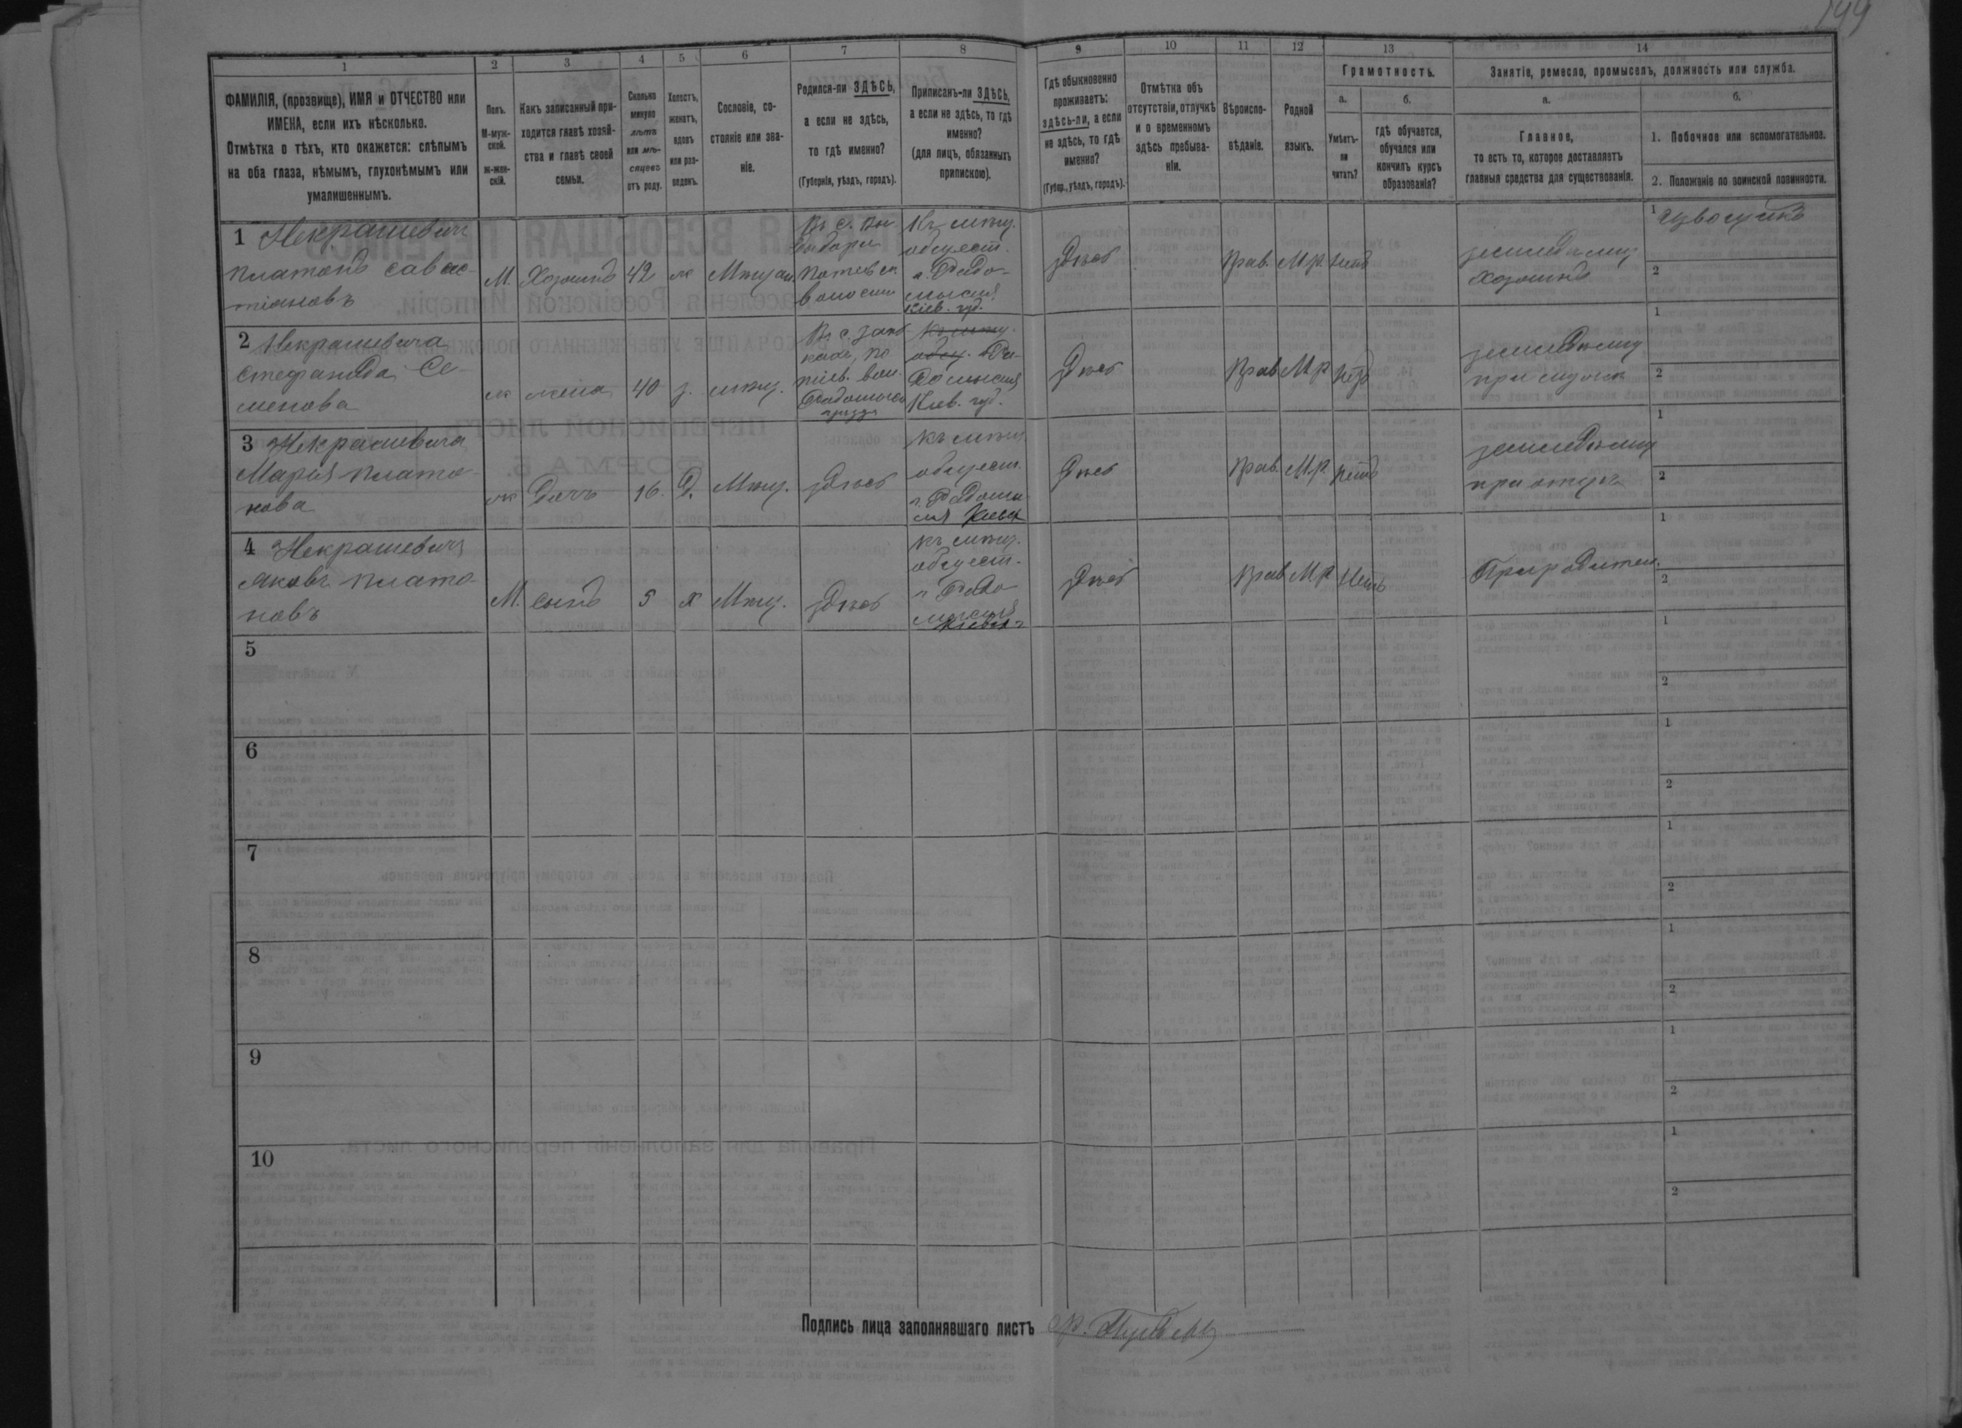 1
2
3
4
5
6
7
8
9
10
11
12
13
14
ФАМИЛІЯ, (прозвище), ИМЯ и ОТЧЕСТВО или
ИМЕНА, если ихъ нѣсколько.
Отмѣтка о тѣхъ, кто окажется: слѣпымъ
на оба глаза, нѣмымъ, глухонѣмымъ или
умалишеннымъ.
Полъ.
М-муж-
ской.
Ж-жен-
скій.
Какъ записанный при-
ходится главѣ хозяй-
ства и главѣ своей
семьи.
Сколько
минуло
лѣтъ
или мѣ-
сяцевъ
отъ роду.
Холостъ,
женатъ,
вдовъ
или раз-
веденъ.
Сословіе, со-
стояніе или зва-
ніе.
Родился-ли ЗДѢСЬ,
а если не здѣсь,
то гдѣ именно?
(Губернія, уѣздъ, городъ).
Приписанъ-ли ЗДѢСЬ,
а если не здѣсь, то гдѣ
именно?
(для лицъ, обязанныхъ
припискою).
Гдѣ обыкновенно
проживаетъ:
здѣсь-ли, а если
не здѣсь, то гдѣ
именно?
(Губер., уѣздъ, городъ).
Отмѣтка объ
отсутствіи, отлучкѣ
и о временномъ
здѣсь пребыва-
ніи.
Вѣроиспо-
вѣданіе.
Родной
языкъ.
Грамотность.
а.
б.
Умѣетъ-
ли
читать?
гдѣ обучается,
обучался или
кончилъ курсъ
образованія?
Занятіе, ремесло, промыселъ, должность или служба.
а.
б.
Главное,
то есть то, которое доставляетъ
главныя средства для существованія.
1. Побочное или вспомогательное.
2. Положеніе по воинской повинности.
1 Некрашевичъ
Платонъ Савас-
тіановъ
М. Хозяинъ 42 ж Мѣщан.
волости
Къ мѣщ.
общест.
г. Радо-
мысля
Кіев. губ.
здѣсь
Прав. М.р. нетъ
земледѣлец
хозяинъ
1 Извощикъ
2
2 Некрашевича
Стефанида Се-
менова
ж жена 40 з. мѣщ.
Ра-
домысля
Кіев. губ.
здѣсь
Прав. М.р. нетъ
земледѣлец
при мужѣ
1
2
3 Некрашевича
Марія Плато-
нова
ж Дочь 16. Д. Мѣщ. здѣсь
къ мѣщ.
общест.
г. Радомы-
сля Кіевск
здѣсь
Прав. М.р. нетъ
земледѣлец
при отцѣ
1
2
4 Некрашевичъ
Яковъ Плато-
новъ
М. сынъ 5 х Мѣщ. здѣсь
къ мѣщ.
общест.
г. Радо-
мысля
здѣсь
Прав М.р. нетъ
При родител.
1
2
5
1
2
6
1
2
7
1
2
8
1
2
9
1
2
10
1
2
Подпись лица заполнявшаго листъ